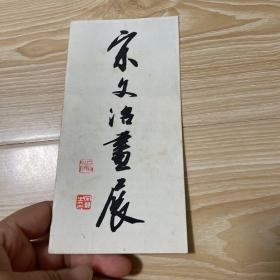 宋文治畫展